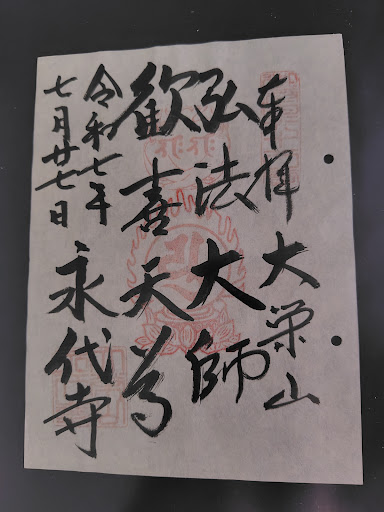 奉拝 大栄山
弘法大師
歓喜天尊
令和七年
七月廿七日
永代寺